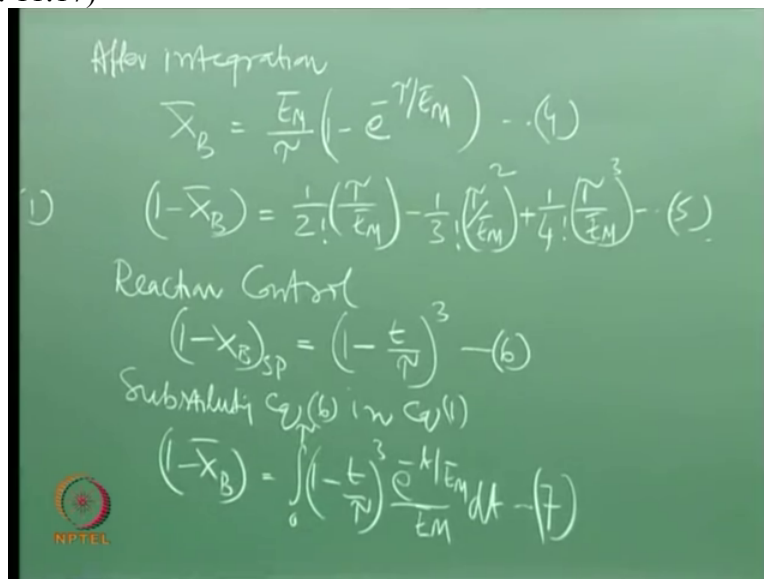 After integration
X̄_B = t̄_M/τ (1 - e^{-τ/t̄_M}) --(4)
1) (1-X̄_B) = 1/2! (τ/t̄_M) - 1/3! (τ/t̄_M)^2 + 1/4! (τ/t̄_M)^3 -- (5)
Reaction Control
(1-X_B)_SP = (1 - t/τ)^3 —(6)
Substituting Eq(6) in Eq(1)
(1-X̄_B) = ∫_0^τ (1 - t/τ)^3 e^{-t/t̄_M}/t̄_M dt -(7)
NPTEL